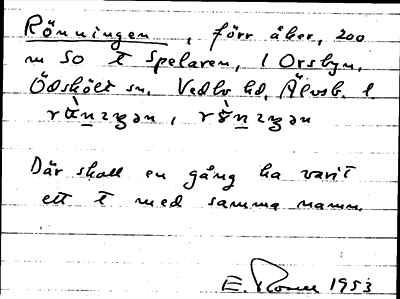 Rönningen, förr åker, 200
m SO T Spelaren, 1 Orsbyn,
Ödskölt sn. Vedbo hd, Älvsb. l
Där skall en gång ha varit
ett T med samma namn.
E. 1953